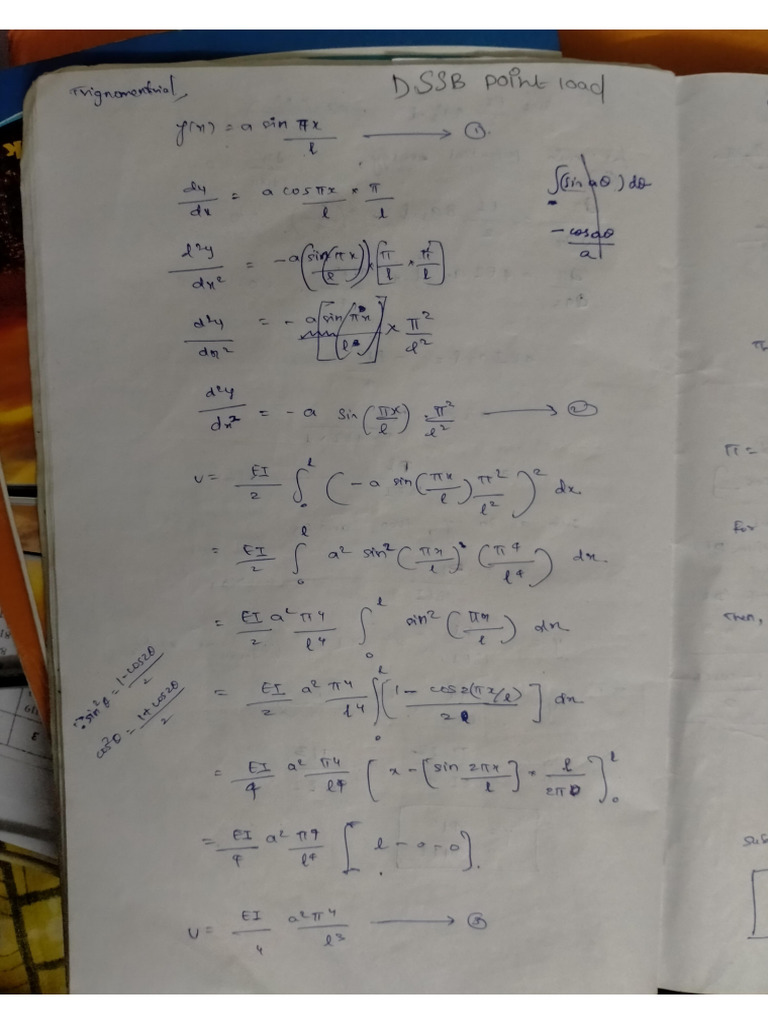 Trignomentrial,
DSSB point load
y(x) = a sin πx/l → ①
dy/dx = a cos πx/l * π/l
∫(sin aθ) dθ
- cos aθ/a
d²y/dx² = -a (sin(πx)/l) * [π/l * π/l]
d²y/dx² = - a [sin πx/l] × π²/l²
d²y/dx² = -a sin(πx/l) . π²/l² → ②
U = EI/2 ∫₀ˡ (-a sin(πx/l) π²/l²)² dx
= EI/2 ∫₀ˡ a² sin²(πx/l)² (π4/l4) dx.
= EI/2 a² π4/l4 ∫₀ˡ sin²(πx/l) dx
∴ sin²θ = 1-cos2θ/2
cos²θ = 1+cos2θ/2
= EI/2 a² π4/l4 ∫₀ˡ [1 - cos2(πx/l)/2] dx
= EI/4 a² π4/l4 [x - [sin 2πx/l] * l/2π]₀ˡ
= EI/4 a² π4/l4 [l - 0 - 0].
U = EI/4 a²π4/l3 → ③
π =
For
Then,